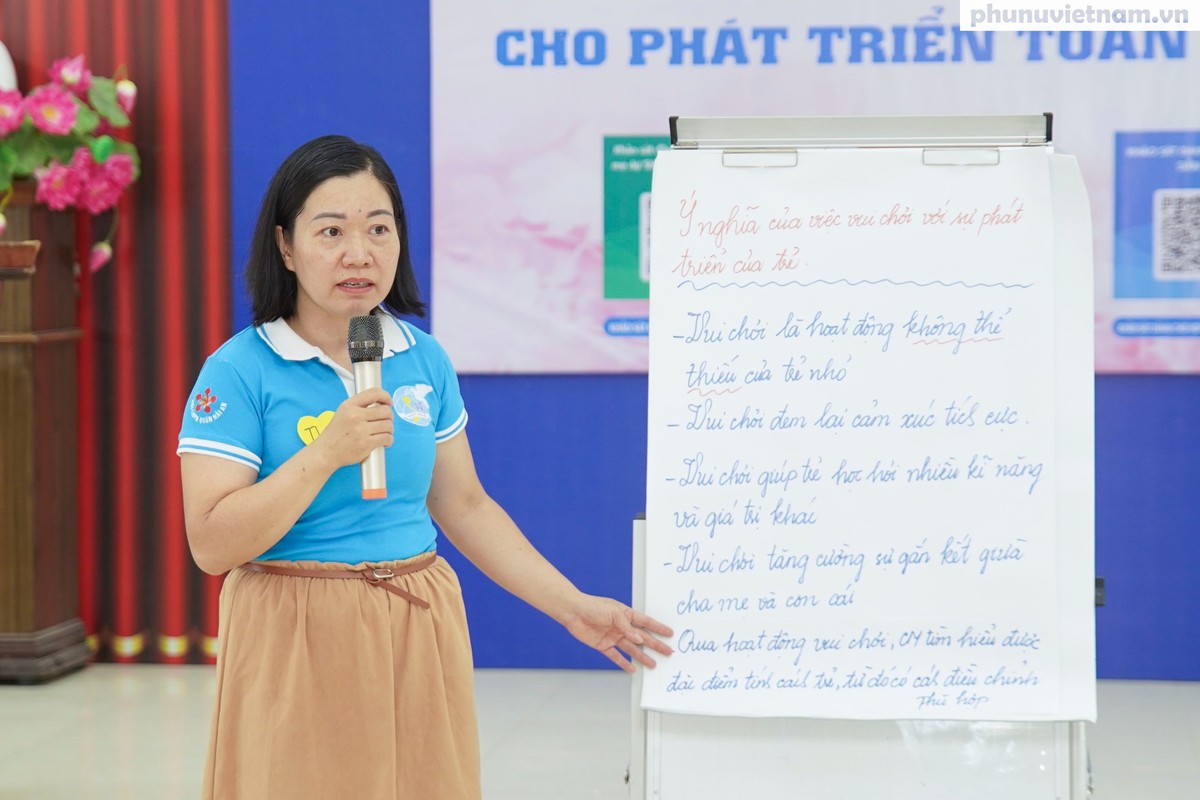 phunuvietnam.vn
CHO PHÁT TRIỂN TOÀN
Ý nghĩa của việc vui chơi với sự phát
triển của trẻ.
- Vui chơi là hoạt động không thể
thiếu của trẻ nhỏ
- Vui chơi đem lại cảm xúc tích cực.
- Vui chơi giúp trẻ học hỏi nhiều kĩ năng
và giá trị khác
- Vui chơi tăng cường sự gắn kết giữa
cha mẹ và con cái
- Qua hoạt động vui chơi, CM tìm hiểu được
đặc điểm tính cách trẻ, từ đó có cách điều chỉnh
phù hợp